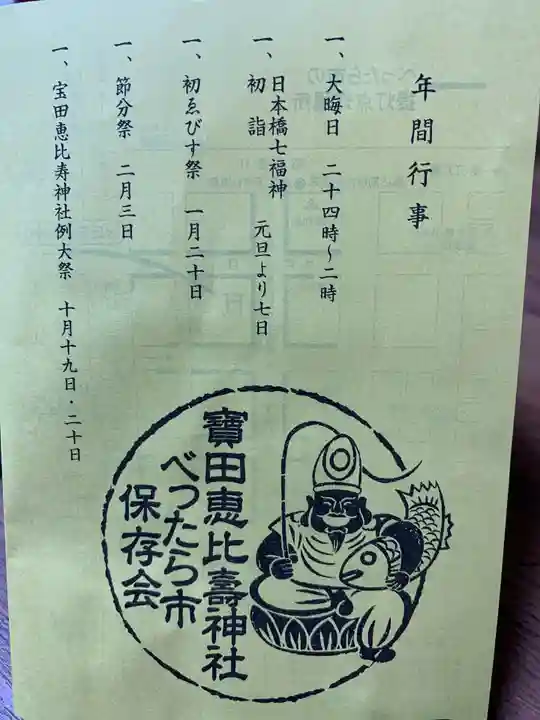 年間行事
一、大晦日　二十四時～二時
一、日本橋七福神
初詣　元旦より七日
一、初ゑびす祭　一月二十日
一、節分祭　二月三日
一、宝田恵比寿神社例大祭　十月十九日・二十日
寶田恵比壽神社
べったら市
保存会